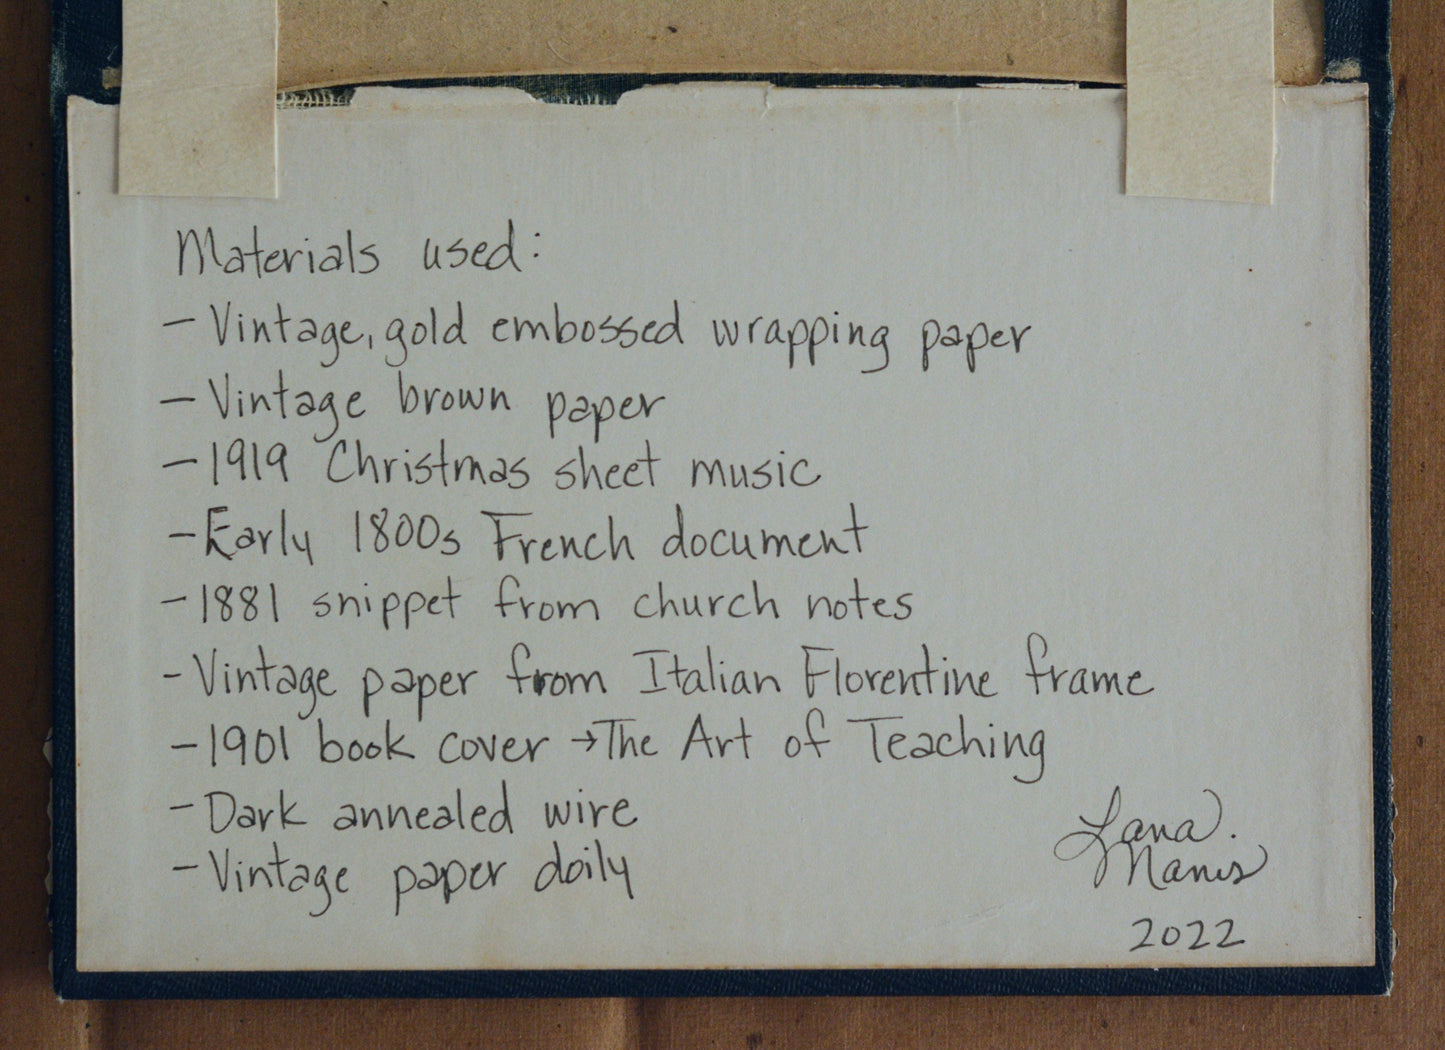 Materials used:
- Vintage, gold embossed wrapping paper
- Vintage brown paper
- 1919 Christmas sheet music
- Early 1800s French document
- 1881 snippet from church notes
- Vintage paper from Italian Florentine frame
- 1901 book cover → The Art of Teaching
- Dark annealed wire
- Vintage paper doily
Lana
Nanis
2022